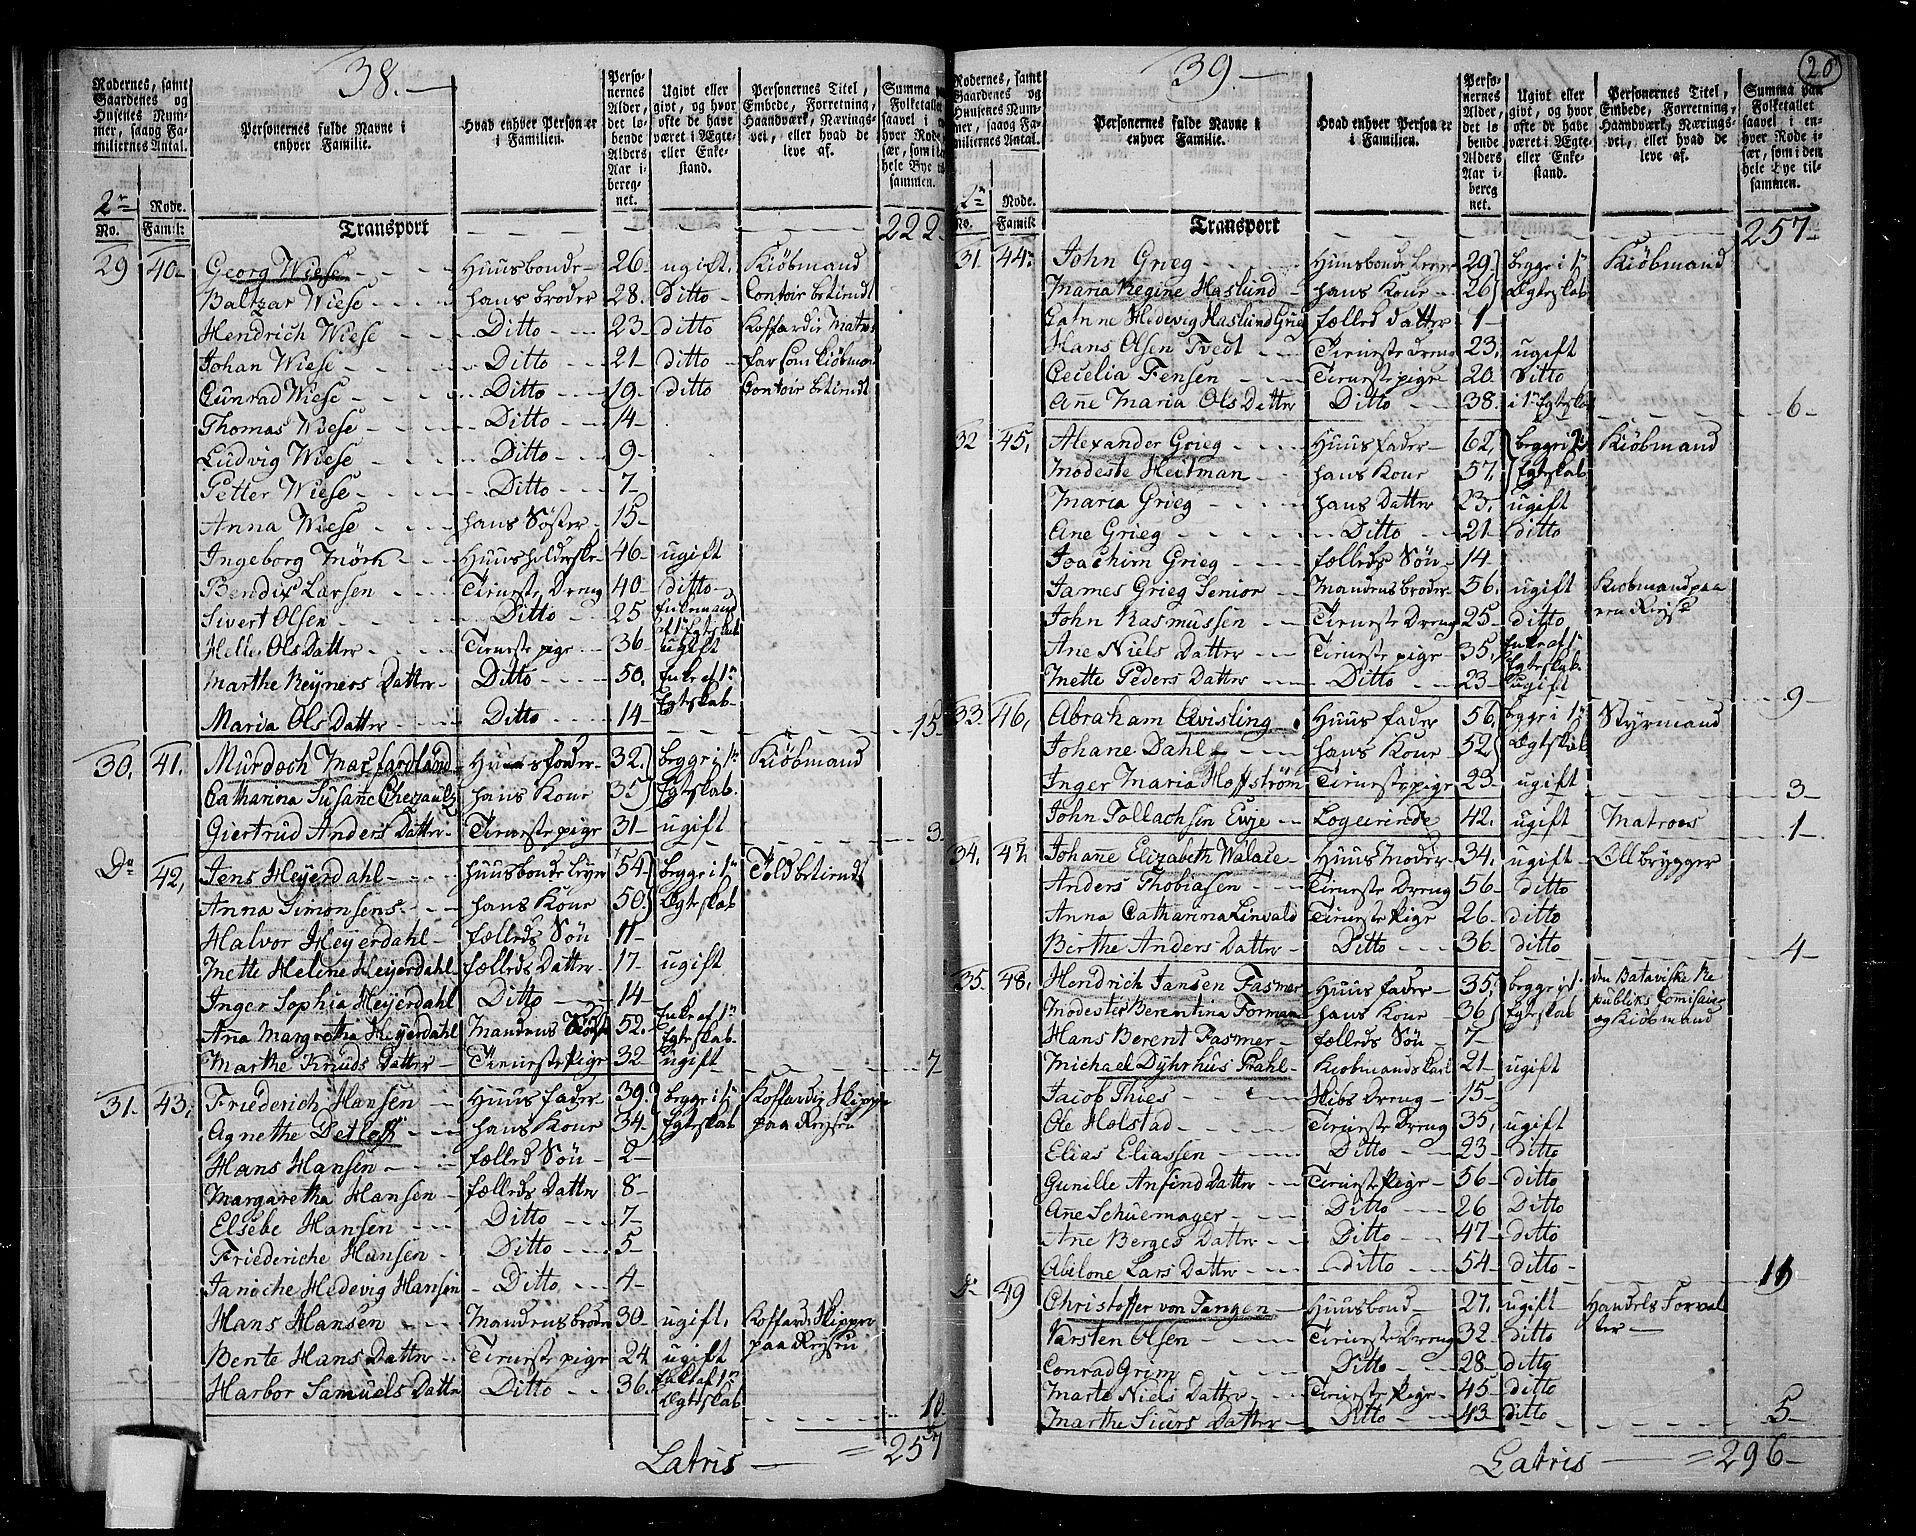 38.
Rodernes, samt Gaardenes og Husenes Nummer, saavog Familiernes Antal.
Personernes fulde Navne i enhver Familie.
Hvad enhver Person er i Familien.
Personernes Alder, det løbende Alders Aar iberegnet.
Ugivt eller givt, og hvor ofte de have været i Ægte- eller Enkestand.
Personernes Titel, Embede, Forretning, Haandværk, Næringsvei, eller hvad de leve af.
Summa paa Folketallet saavel i enhver Rode især, som i det hele Bye tilsammen.
2n Rode.
No. Famil:
Transport 222
29 40 Georg Wiese Huusbonde 26 ugift. Kiøbmand
Baltzar Wiese hans broder 28. Ditto Contoir betiendt
Hendrich Wiese Ditto 23 ditto Koffardie Matros
Johan Wiese Ditto 21 ditto far som Kiøbmand
Cunrad Wiese Ditto 19 ditto Contoir betiendt
Thomas Wiese Ditto 14
Ludvig Wiese Ditto 9
Petter Wiese Ditto 7
Anna Wiese hans Søster 15
Ingeborg Mörk Huusholderske 46 ugift
Bendix Larsen Tieneste Dreng 40 ditto
Sivert Olsen Ditto 25 Enkemand af 1t Egteskab
Helle Ols Datter Tieneste pige 36 ugift
Marthe Reyners Datter Ditto 50 Enke af 1n Egteskab
Maria Ols Datter Ditto 14 15
30. 41. Murdoch Macfardland Huusfader 32 begge i 1te Egteskab Kiøbmand
Catharina Susane Chezaulz hans Kone 35
Giertrud Anders Datter Tieneste pige 31 ugift 3
Do 42, Jens Heyerdahl Huusbonde 54 begge i 1n Ægteskab Toldbetiendt
Anna Simonsens hans Kone 50
Halvor Heyerdahl fælleds Søn 11
Mette Heline Heyerdahl fælleds Datter 17 ugift
Inger Sophia Heyerdahl Ditto 14
Aña Margretha Heyerdahl Mandens 52. Enke af 1n Egteskab
Marthe Knuds Datter Tieneste Pige 32 ugift 7
31. 43. Friederich Hansen Huus fader 39 begge i 1t Egteskab Koffardie Skipper paa Reysen
Agnethe Detleff hans Kone 34
Hans Hansen fælled Søn 2
Margaretha Hansen fælleds Datter 8
Elsebe Hansen Ditto 7
Friederiche Hansen Ditto 5
Janiche Hedevig Hansen Ditto 4
Hans Hansen Mandens broder 30 ugift, Koffardi Skipper paa Reysen
Bente Hans Datter Tieneste pige 24 ugift
Harbor Samuels Datter Ditto 36 Enke af 1n Ægteskab 10
Latris = 257
20
39
Rodernes, samt Gaardenes og Husenes Nummer, saavog Familiernes Antal.
Personernes fulde Navne i enhver Familie.
Hvad enhver Person er i Familien.
Personernes Alder, det løbende Alders Aar iberegnet.
Ugivt eller givt, og hvor ofte de have været i Ægte- eller Enkestand.
Personernes Titel, Embede, Forretning, Haandværk, Næringsvei, eller hvad de leve af.
Summa paa Folketallet saavel i enhver Rode især, som i den hele Bye tilsammen.
2n Rode.
No. Famil:
Transport 257
31 44 John Grieg Huusbonde 29 begge i 1t Ægteskab Kiøbmand
Maria Regine Haslund hans Kone 26
Catrine Hedevig Haslund Grieg fælled Datter 1
Hans Olsen Tvedt Tieneste Dreng 23, ugift
Cecelia Jensen Tieneste pige 20 Ditto
Ane Maria Ols Datter Ditto 38. i 1t Egteskab 6
32 45, Alexander Grieg Huus fader 62, begge i 2t Egteskab Kiøbmand
Modeste Heitman hans Kone 57,
Maria Grieg hans Datter 23, ugift
Ane Grieg Ditto 21 ditto
Joachim Grieg fælleds Søn 14
James Grieg Senior Mandens broder 56. ugift Kiøbmand paa en Reyse
John Rasmussen Tieneste Dreng 25 ditto
Ane Niels Datter Tieneste pige 35, Enke af 1t Egteskab
Mette Peders Datter Ditto 23 ugift 9
33 46, Abraham Qvisling Huus fader 56, begge i 1t Ægteskab Styrmand
Johane Dahl hans Kone 52
Inger Maria Hoffström Tieneste pige 23 ugift 3
John Tollachsen Ewje Logerende 42. ugift Matroes 1
34. 47. Johañe Elizabeth Walace Huus Moder 34. ugift Øllbrygger
Anders Thobiasen Tieneste Dreng 56 ditto
Anna Catharina Linvald Tieneste Pige 26 ditto
Birthe Anders Datter Ditto 36 ditto 4
35. 48. Hendrich Jansen Fasmer Huus fader 35, begge i 1t Egteskab den Bataviske Republiks Comisair og Kiøbmand
Modesta Berentina Forman hans Kone 36
Hans Berent Fasmer fælleds Søn 7
Michael Dyhrhus Prahl Kiøbmands Karl 21 ugift
Jacob Thies Dreng 15
Ole Holstad Tieneste Dreng 35, ugift
Elias Eliassen Ditto 23 ditto
Gunille Anfind Datter Tieneste Pige 56 ditto
Ane Schuemager Ditto 26 Ditto
Ane Berges Datter Ditto 47 ditto
Abelone Lars Datter ditto 54 ditto 11
Do 49 Christoffer von Tangen Huusbond 27. ugift Handels Forvalter
Karsten Olsen Tieneste Dreng 32 ditto
Conrad Grim Ditto 28 ditto
Marte Niels Datter Tieneste Pige 45 ditto
Marthe Siurs Datter Ditto 43 ditto 5
Latris = 296